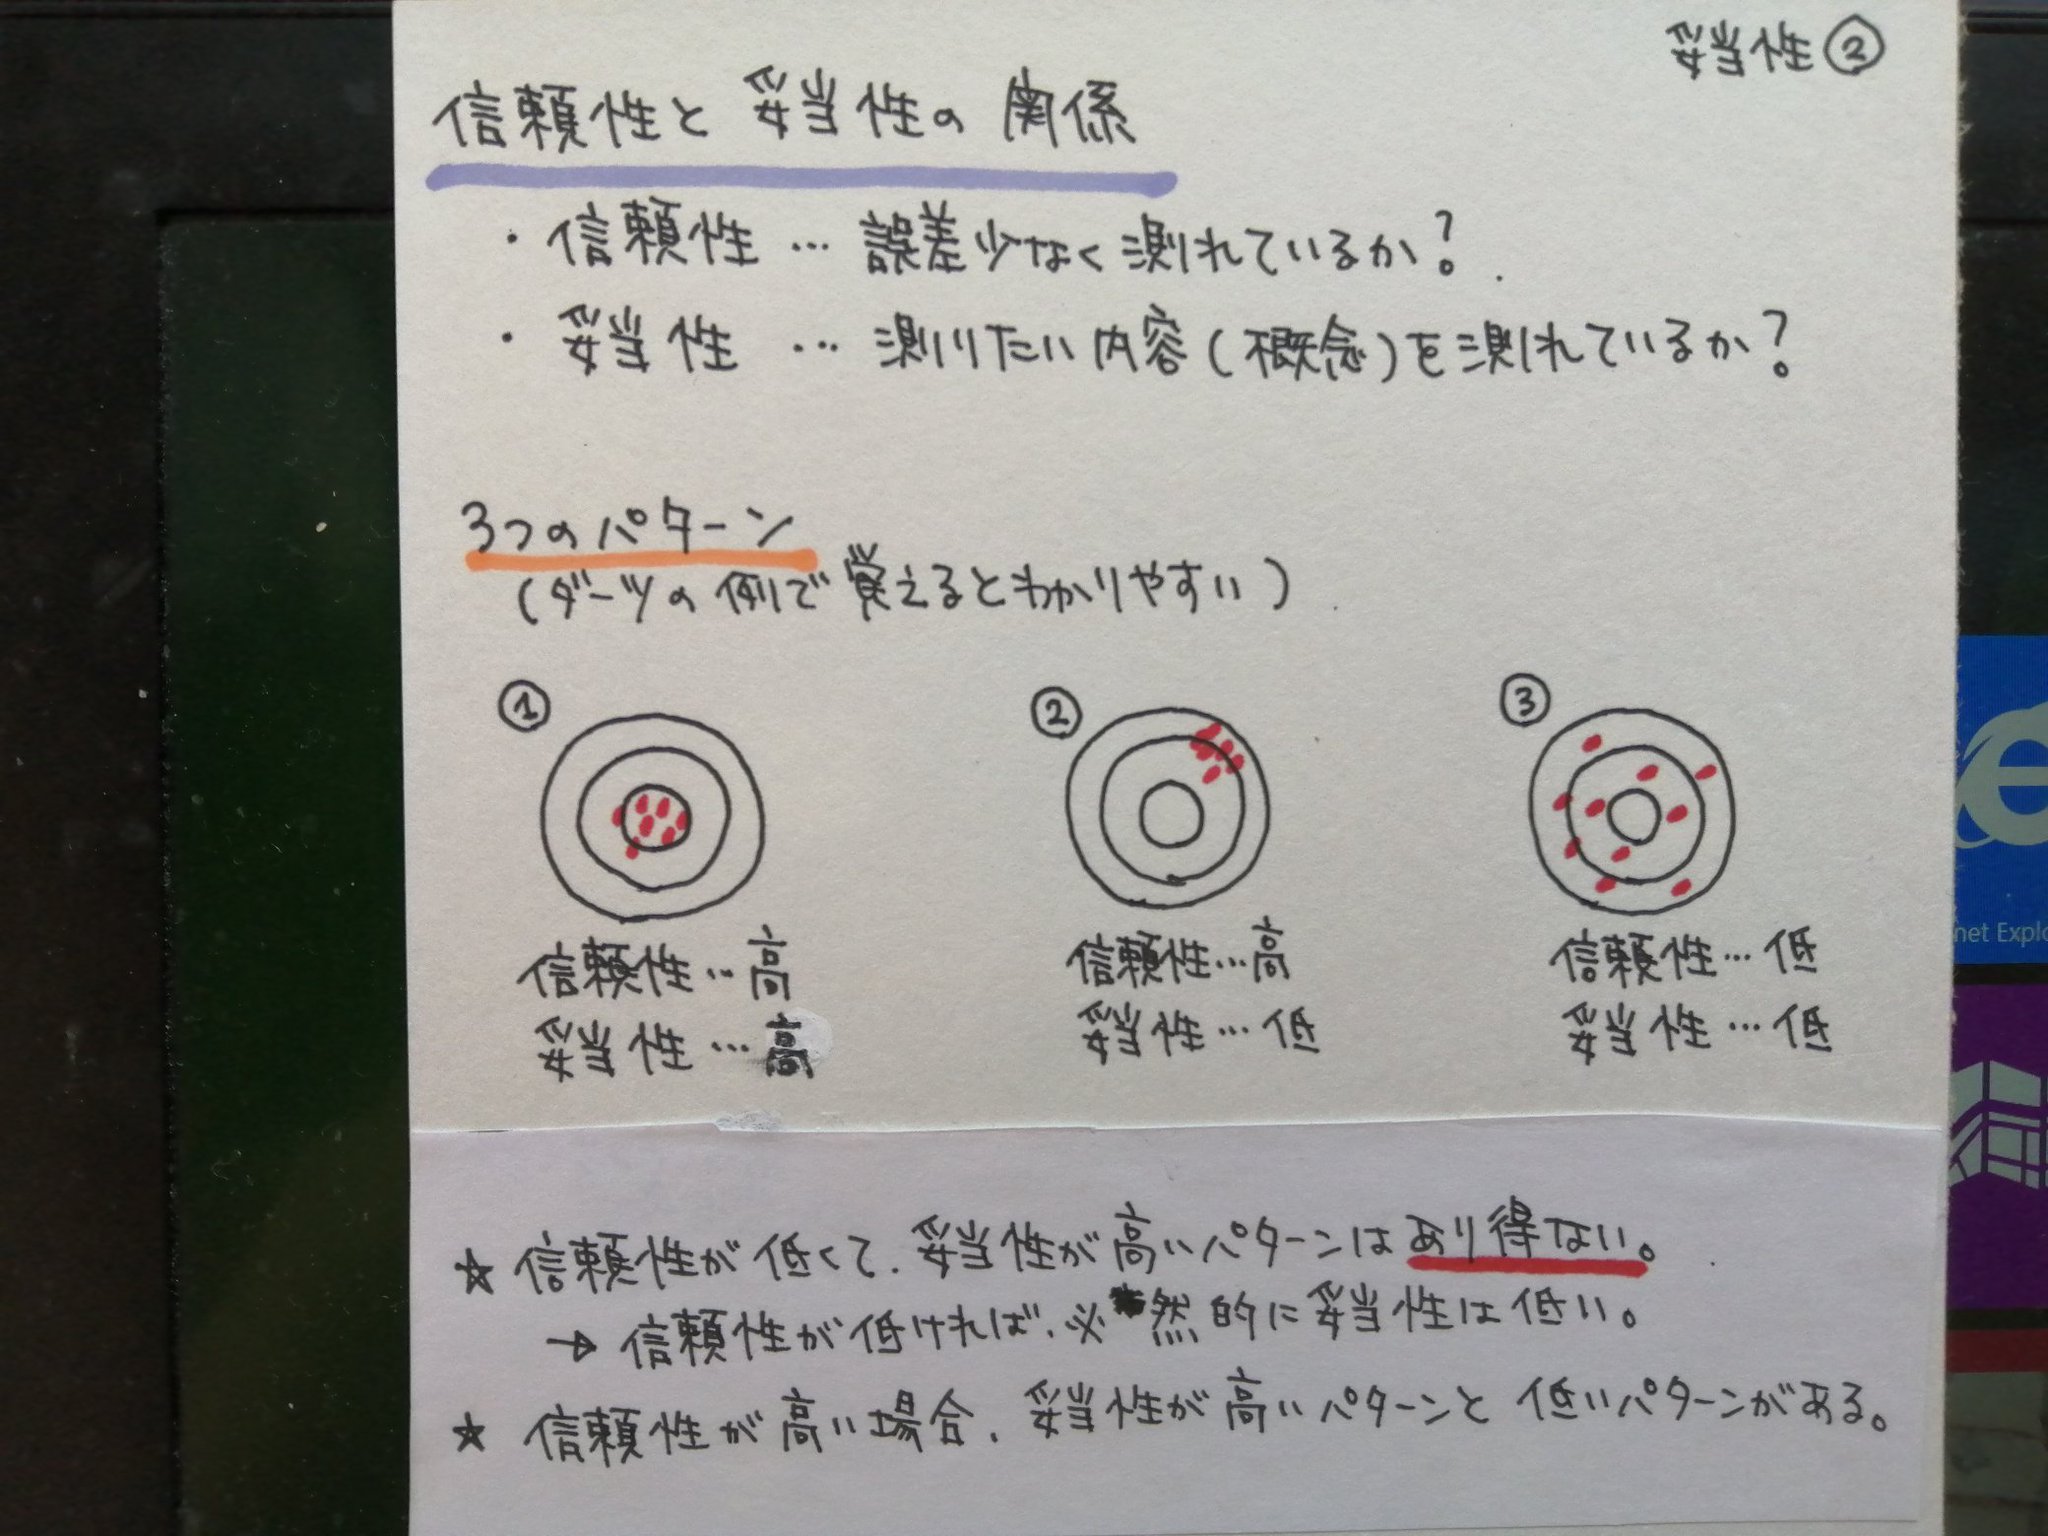 妥当性②
信頼性と妥当性の関係
・信頼性…誤差少なく測れているか?
・妥当性…測りたい内容(概念)を測れているか?
3つのパターン
(ダーツの例で覚えるとわかりやすい)
① ② ③
信頼性…高 信頼性…高 信頼性…低
妥当性…高 妥当性…低 妥当性…低
net Explo
☆信頼性が低くて、妥当性が高いパターンはあり得ない。
→信頼性が低ければ、必然的に妥当性は低い。
☆信頼性が高い場合、妥当性が高いパターンと低いパターンがある。